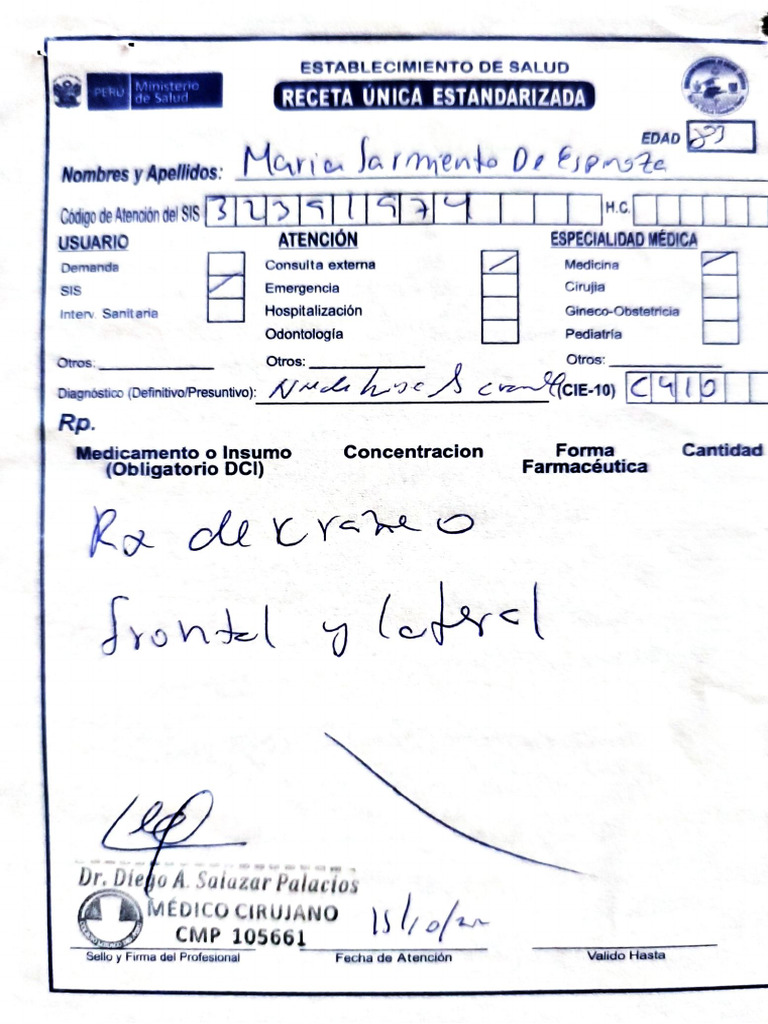 PERÚ Ministerio de Salud
ESTABLECIMIENTO DE SALUD
RECETA ÚNICA ESTANDARIZADA
EDAD 83
Nombres y Apellidos: Maria Sarmiento De Espinoza
Código de Atención del SIS 32391974 H.C.
USUARIO ATENCIÓN ESPECIALIDAD MÉDICA
Demanda Consulta externa Medicina
SIS Emergencia Cirujia
Interv. Sanitaria Hospitalización Gineco-Obstetricia
Odontología Pediatría
Otros: Otros: Otros:
Diagnóstico (Definitivo/Presuntivo): (CIE-10) C410
Rp.
Medicamento o Insumo Concentracion Forma Cantidad
(Obligatorio DCI) Farmacéutica
Rx de craneo
frontal y lateral
Dr. Diego A. Salazar Palacios
MÉDICO CIRUJANO
CMP 105661
15/10/
Sello y Firma del Profesional Fecha de Atención Valido Hasta